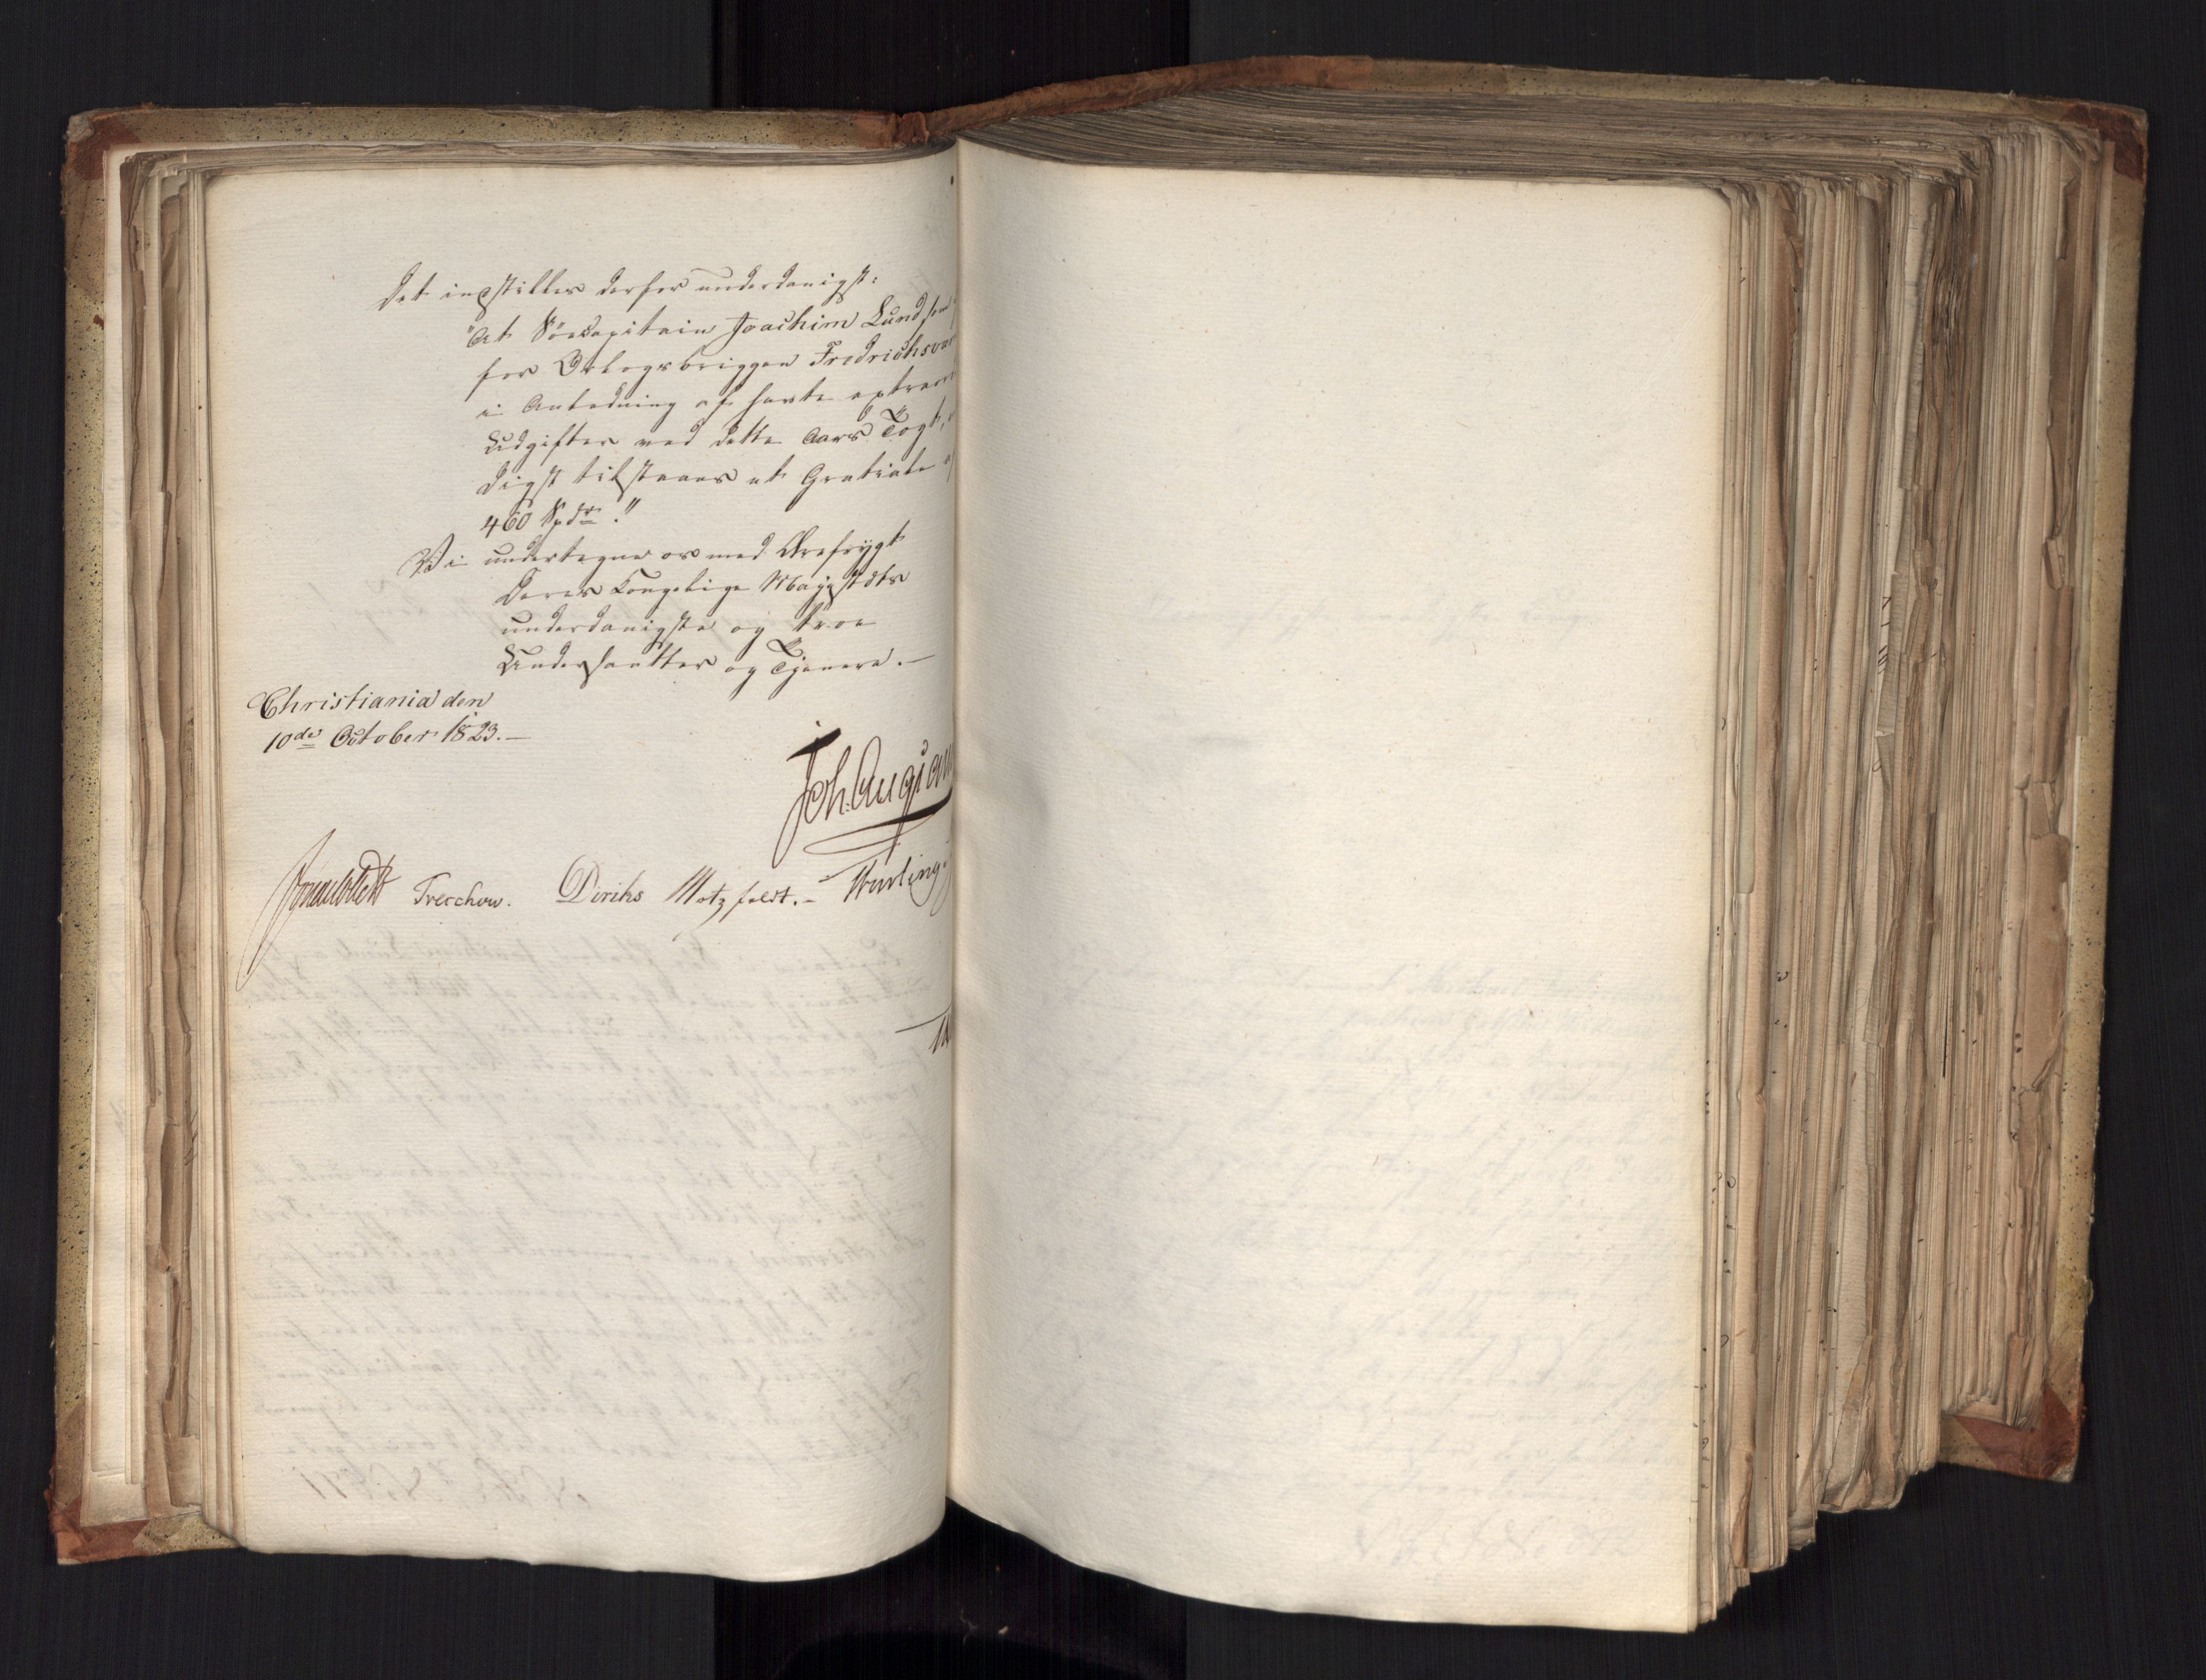 Det indstilles derfor underdanigst:
"At Söecapitain Joachim Lund, som
for Orlogsbriggen Fredrichsvær
i Anledning af havte extraor
Udgifter ved dette Aars Togt,
digst tilstaaes et Gratiale af
460 Spdr."
Vi undertegne os med Ærefrygt
Deres Kongelige Majestæts
underdanigste og troe
Undersaatter og Tjenere.—
Christiania den
10de October 1823.—
Joh. Aug. San
Treschow. Diriks Motzfeldt.–